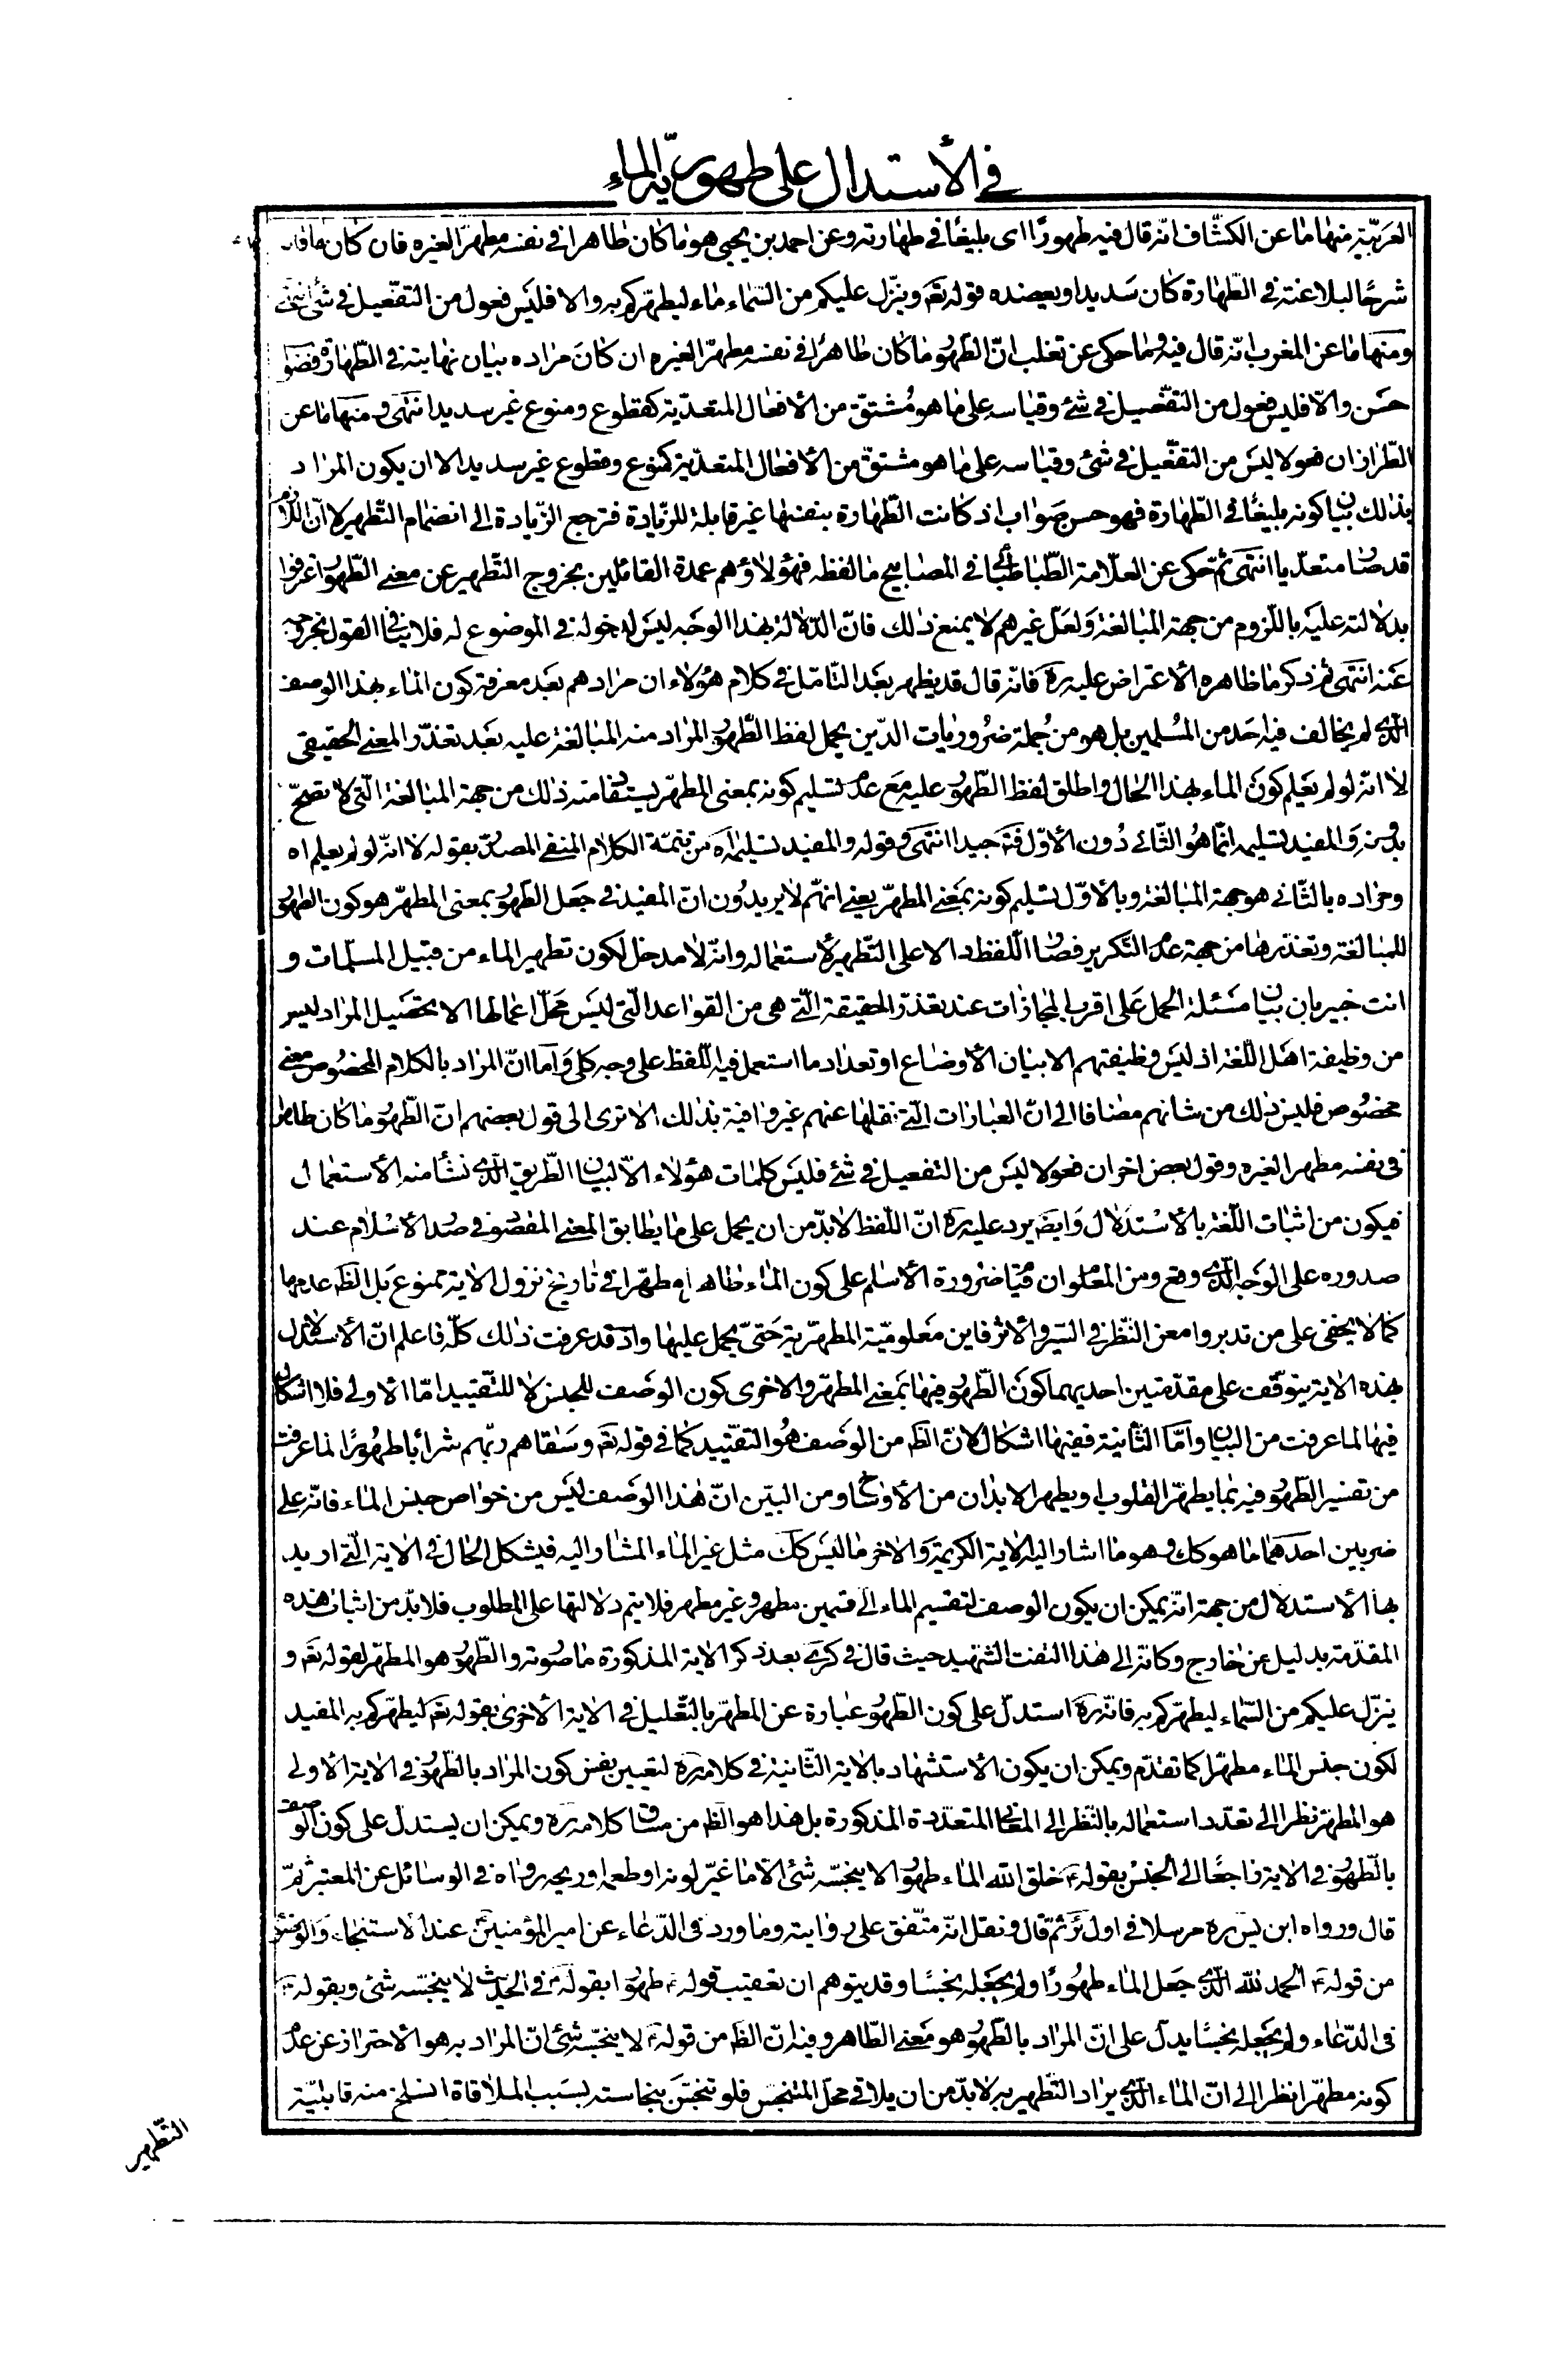 في الاستدلال على طهوريّة الماء
العربيّة منها ما عن الكشّاف انّه قال فيه طهورًا اى بليغًا في طهارته وعن احمد بن يحيى هو ما كان طاهرا في نفسه مطهرّا لغيره فان كان ما قاله
شرحًا لبلاغته في الطّهارة كان سديدا ويعضده قوله تعَ وينزّل عليكم من السّماء ماء ليطهّركم به والا فليس فعول من التفّعيل في شئ انتهى
ومنها ما عن المغرب انّه قال فيه وما حكى عن تغلب انّ الطّهور ما كان طاهرًا في نفسه مطهرّا لغيره ان كان مراده بيان نهايته في الطّهارة فصواب
حسَن والّا فليس فعول من التفّعيل في شئ وقياسه على ما هو مُشتقّ من الأفعال المتعدّية كقطوع ومنوع غير سديد انتهى ومنها ما عن
الطّراز ان فعولا ليسَ من التفّعيل في شئ وقياسه على ما هو مشتقّ من الأفعال المتعدّية كمنوع وقطوع غير سديد الا ان يكون المراد
بذلك بيان كونه بليغًا في الطّهارة فهو حسن صواب اذ كانت الطّهارة بنفسها غير قابلة للزّيادة فترجع الزّيادة الى انضمام التّطهير لا انّ اللّازم
قد صار متعدّيا انتهى ثمّ حكى عن العلّامة الطّباطبائي في المصابيح ما لفظه فهؤلاء هم عمدة القائلين بخروج التّطهير عن معنى الطّهور اعترفوا
بدلالته عليَه باللّزوم من جهة المبالغة وَلعلّ غيرهم لا يمنع ذلك فانّ الدّلالة بهذا الوجَه ليسَ لدخوله في الموضوع له فلا ينافي القول بخروجه
عَنه انتهى ثم ذكر ما ظاهره الأعتراض عليه ره فانّه قال قد يظهر بعَد التّامّل في كلام هؤلاء ان مرادهم بعَد معرفة كون الماء بهذا الوصف
الّذى لم يخالف فيه احَد من المُسلمين بل هو من جُملة ضرُوريات الدّين يحمل لفظ الطّهور المراد منه المبالغة عليه بعَد تعذّر المعنى الحقيقى
لا انّه لو لم نعَلم كونَ الماء بهذا الحال واطلق لفظ الطّهور عليه مَع عدم تسليم كونه بمعنى المطهّر يستفاد منه ذلك من جهة المبالغة الّتى لا تصحّ
بدُونه وَالمفيد تسليمه انّما هوُ الثّاني دُون الأوّل فتَه جيدا انتهى وقوله والمفيد تسليمه اه من تتمّة الكلام المنفى المصدّر بقوله لا انّه لو لم يعلم اه
ومراده بالثّاني هو جهة المبالغة وبالأوّل تسليم كونه بمَعنى المطهّر يعنى انهّم لا يريدُون انّ المفيد في جَعل الطّهور بمعنى المطهّر هو كون الطهور
للمبالغة وتعذرها من جهة عدم التّكرير فصار اللّفظ دالا على التّطهير لأستعماله وانّه لا مدخل لكون تطهير الماء من قبيل المسلّمات و
انت خبير بان بيان مسَئلة الحمل عَلى اقرب المجازات عند تعذّر الحقيقة الّتى هى من القواعد الّتى ليسَ محَلّ اعمالها الا تحصَيل المراد ليس
من وظيفة اهَل اللّغة اذ ليسَ وظيفتهم الا بنيان الأوضاع او تعداد ما استعمل فيه اللّفظ على وجه كلى وَامّا انّ المراد بالكلام المخصُوص معنى
مخصُوص فليس ذلك من شانهم مضافا الى انّ العبارات الّتى نقلها عنهم غير وافية بذلك الا ترى الى قول بعضهم انّ الطّهور ما كان طاهرا
في نفسه مطهرا لغيره وقول بعض اخر ان فعولا ليسَ من التفعيل في شئ فليسَ كلمات هؤلاء الّا لبيان الطّريق الّذى نشأ منه الأستعمال
فيكون من اثبات اللّغة بالأستدلال وَايضَ يرد عليه ره انّ اللّفظ لا بدّ من ان يحمل على ما يطابق المعنى المقصود في صدر الأسلام عند
صدوره على الوجَه الّذى وقع ومن المعلوم ان قيام ضرورة الأسلام على كون الماء طاهرا مطهّرا في تاريخ نزول الاية ممنوع بَل الظّ عدمها
كما لا يخفى على من تدبر وامعن النّظر في السّير والأثر فاين معَلوميّة المطهّرية حَتىّ يحمل عليها واذ قد عرفت ذلك كلّه فاعلم انّ الأستدلال
بهذه الاية يتوقّف على مقدّمتين احديهما كونَ الطّهور فيها بمَعنى المطهّر والاخرى كون الوصَف للجنس لا للتّقييد امّا الأولى فلا اشكال
فيها لما عرفت من البيان وامّا الثّانية ففيها اشكال لانّ الظّ من الوصَف هوُ التقيّيد كما في قوله تعَ وسَقاهم ربّهم شرابًا طهُورًا لما عرفت
من تفسير الطّهور فيه بما يطهّر القلوب او يطهر الابدان من الأوساخ ومن البيّن انّ هذا الوصَف ليَس من خواص جنس الماء فانّه على
ضربين احدَهما ما هو كك وهو ما اشار اليه الاية الكريمة وَالاخر ما ليسَ كك مثل غير الماء المشار اليه فيشكل الحال في الاية الّتى اريد
بها الأستدلال من جهة انّه يمكن ان يكون الوصف لتقسيم الماء الى قسمين مطهر وغير مطهر فلا يتم دلالتها على المطلوب فلا بدّ من اثبات هذه
المقدّمة بدليل من خارج وكانّه الى هذا التفت الشّهيد حيث قال في كرى بعد ذكر الاية المذكورة ما صُورته والطّهور هو المطهّر لقوله تعَ و
ينزّل عليكم من السّماء ليطهّركم به فانّه ره استدلّ على كون الطّهور عبارة عن المطهّر بالتّعليل في الاية الأخرى بقوله تعَ ليطهّركم به المفيد
لكون جنس الماء مطهّرا كما تقدّم ويمكن ان يكون الأستشهاد بالاية الثّانية في كلامه ره لتعيين نفس كون المراد بالطّهور في الاية الأولى
هو المطهّر نظرا الى تعدّد استعماله بالنّظر الى المعاني المتعدّدة المذكورة بل هذا هو الظّ من مساق كلامه ره ويمكن ان يستدلّ على كون الوصف
بالطّهور في الاية راجعًا الى الجنس بقوله ع خلق الله الماء طهورا لا ينجّسه شئ الّا ما غيّر لونه او طعمه او ريحه رواه في الوسائل عن المعتبر ثمّ
قال ورواه ابن يس ره مرسلا في اول ئر ثمّ قال ونقل انّه متّفق على روايته وما ورد في الدّعاء عن امير المؤمنين ع عند الاستنجاء وَالوضوء
من قوله ع الحمد للّه الّذى جعَل الماء طهُورًا ولم يجَعله نجسًا وقد يتوهم ان تعقيب قوله ع طهورا بقوله ع في الحديث لا ينجّسه شئ وبقوله ع
في الدّعاء ولم يجَعله نجسًا يدلّ على انّ المراد بالطّهور هو مَعنى الطّاهر وفيه انّ الظّ من قوله ع لا ينجّسه شئ انّ المراد به هو الأحتراز عن عدم
كونه مطهّرا نظرا الى انّ الماء الّذى يراد التّطهير به لا بدّ من ان يلاقى محلّ المتنجّس فلو تنجّسَ بنجاسته بسَبب الملاقاة انسلخ منه قابليّة
التّطهير